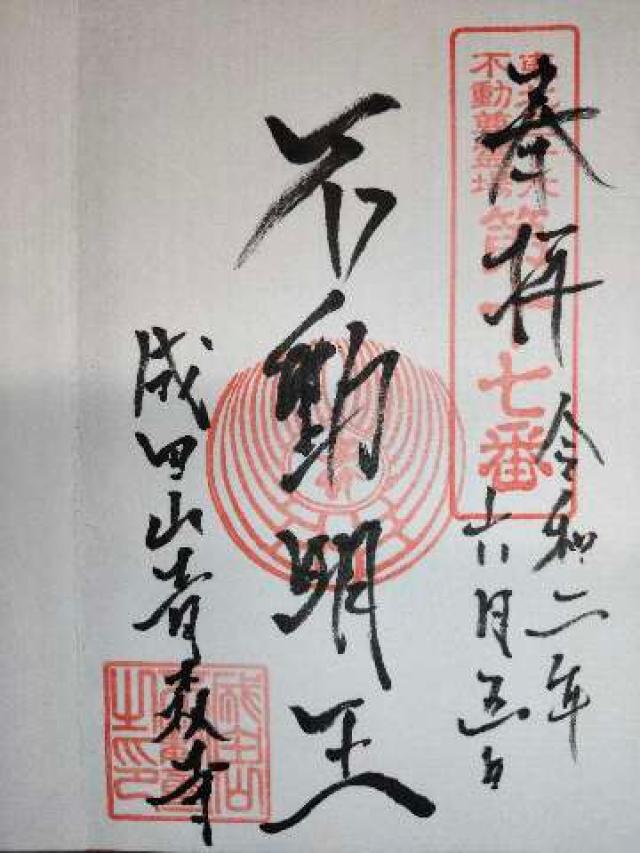 奉拝
令和二年
六月五日
不動尊霊場
七番
不動明王
成田山青森寺